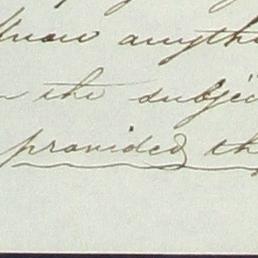 know anythi
n the subjec
provided th